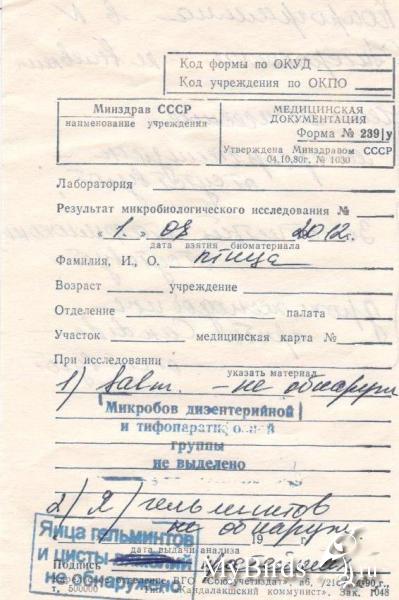 Код формы по ОКУД
Код учреждения по ОКПО
Минздрав СССР
наименование учреждения
МЕДИЦИНСКАЯ
ДОКУМЕНТАЦИЯ
Форма № 239/у
Утверждена Минздравом СССР
04.10.80г. № 1030
Лаборатория
Результат микробиологического исследования №
«1.» 08 2012г.
дата взятия биоматериала
Фамилия, И., О. птица
Возраст учреждение
Отделение палата
Участок медицинская карта №
При исследовании
указать материал
1) - не обнаруж
Микробов дизентерийной
и тифопаратифозной
группы
не выделено
2) Я/гельминтов
не обнаруж.
19 г.
дата выдачи анализа
Подпись
Яйца гельминтов
и цисты
не обнаружено
MyBirds.ru
ВГО «Союзучетиздат»
т. 500000 Тип. «Кандалакшский коммунист». Зак. 1048